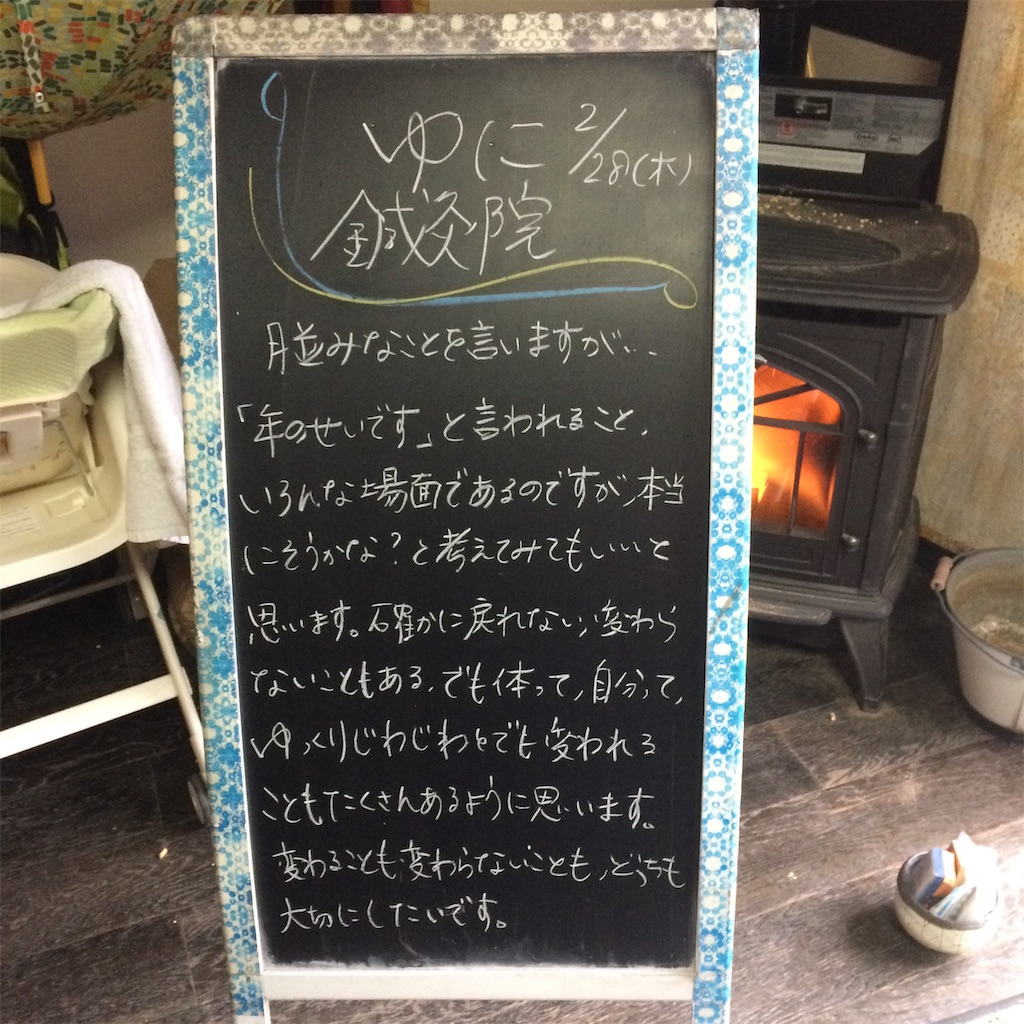 ゆに 2/28(木)
鍼灸院
月並みなことを言いますが...
「年のせいです」と言われること、
いろんな場面であるのですが、本当
にそうかな?と考えてみてもいいと
思います。確かに戻れない、変わら
ないこともある、でも体って、自分って、
ゆっくりじわじわとでも変われる
こともたくさんあるように思います。
変わることも変わらないことも、どっちも
大切にしたいです。